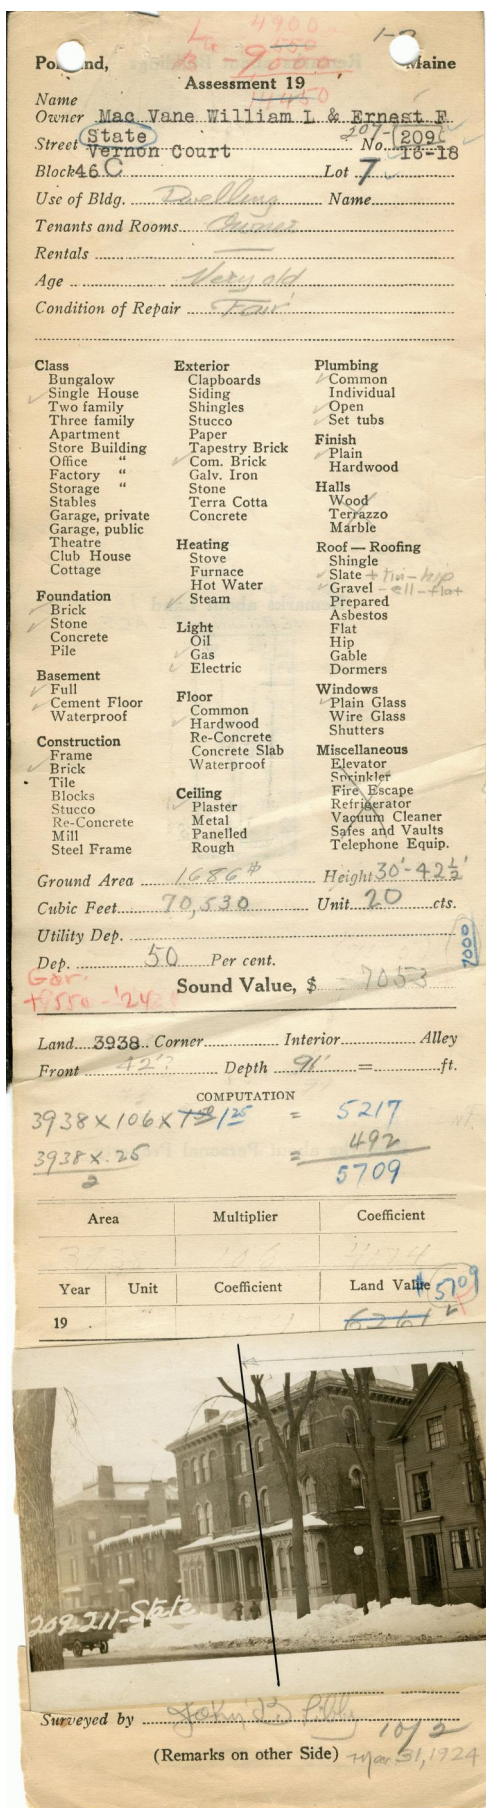 L 4900
550
La
B 9000
14450
Portland, Maine
Assessment 19
Name
Owner Mac Vane William L & Ernest F
Street State No. 207- 209
Vernon Court 16-18
Block 46 C Lot 7
Use of Bldg. Dwelling Name
Tenants and Rooms Owner
Rentals
Age Very old
Condition of Repair Fair
Class
Bungalow
Single House
Two family
Three family
Apartment
Store Building
Office "
Factory "
Storage "
Stables
Garage, private
Garage, public
Theatre
Club House
Cottage
Foundation
Brick
Stone
Concrete
Pile
Basement
Full
Cement Floor
Waterproof
Construction
Frame
Brick
Tile
Blocks
Stucco
Re-Concrete
Mill
Steel Frame
Exterior
Clapboards
Siding
Shingles
Stucco
Paper
Tapestry Brick
Com. Brick
Galv. Iron
Stone
Terra Cotta
Concrete
Heating
Stove
Furnace
Hot Water
Steam
Light
Oil
Gas
Electric
Floor
Common
Hardwood
Re-Concrete
Concrete Slab
Waterproof
Ceiling
Plaster
Metal
Panelled
Rough
Plumbing
Common
Individual
Open
Set tubs
Finish
Plain
Hardwood
Halls
Wood
Terrazzo
Marble
Roof — Roofing
Shingle
Slate + tin - hip
Gravel - ell - flat
Prepared
Asbestos
Flat
Hip
Gable
Dormers
Windows
Plain Glass
Wire Glass
Shutters
Miscellaneous
Elevator
Sprinkler
Fire Escape
Refrigerator
Vacuum Cleaner
Safes and Vaults
Telephone Equip.
Ground Area 1686 # Height 30'-42½'
Cubic Feet 70,530 Unit 20 cts.
Utility Dep.
7000
Dep. 50 Per cent.
Gar.
Sound Value, $ 7053
Land 3938 Corner Interior Alley
Front 42'? Depth 91' = ft.
COMPUTATION
3938 x 106 x 125 = 5217
3938 x .25 = 492
2
5709
Area Multiplier Coefficient
Year Unit Coefficient Land Value $ 5709
19 6261
209-211-State
Surveyed by John B Libby
10/2
(Remarks on other Side) Mar. 31, 1924